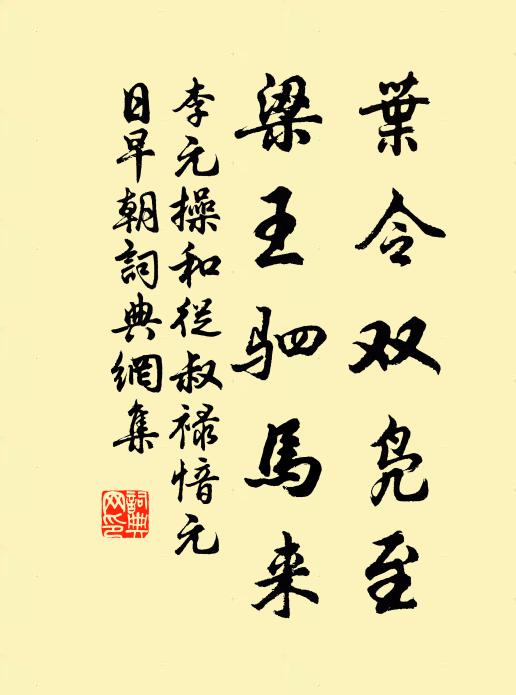 葉令双凫至
梁王驷馬来
李元操和從叔禄愔元
日早朝詞典網集
詞典
网印